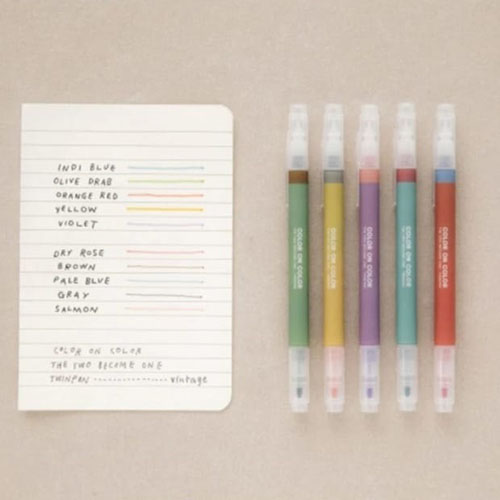 INDI BLUE
OLIVE DRAB
ORANGE RED
YELLOW
VIOLET
DRY ROSE
BROWN
PALE BLUE
GRAY
SALMON
COLOR ON COLOR
THE TWO BECOME ONE
TWINPEN ---------------- vintage
COLOR ON COLOR
COLOR ON COLOR
COLOR ON COLOR
COLOR ON COLOR
COLOR ON COLOR